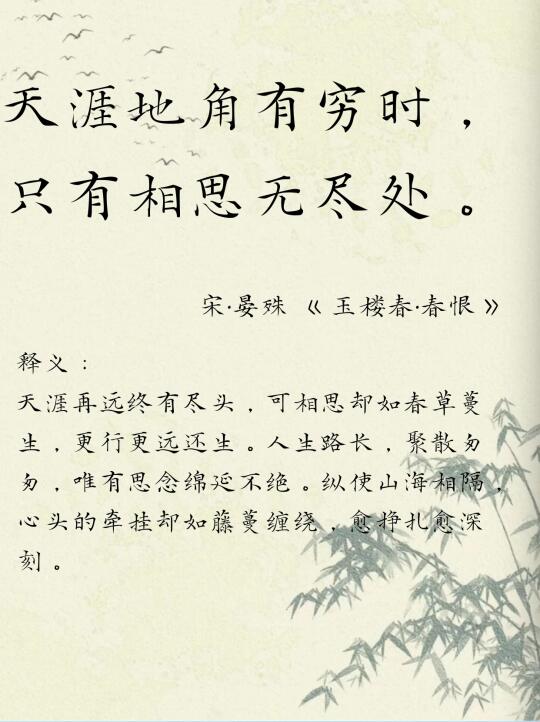 天涯地角有穷时，
只有相思无尽处。
宋·晏殊《玉楼春·春恨》
释义：
天涯再远终有尽头，可相思却如春草蔓
生，更行更远还生。人生路长，聚散匆
匆，唯有思念绵延不绝。纵使山海相隔，
心头的牵挂却如藤蔓缠绕，愈挣扎愈深
刻。